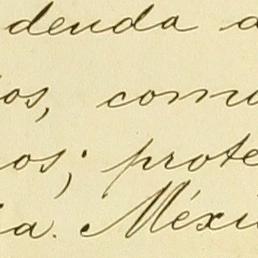 deuda a
os, como
os; prote
ia. Méxi